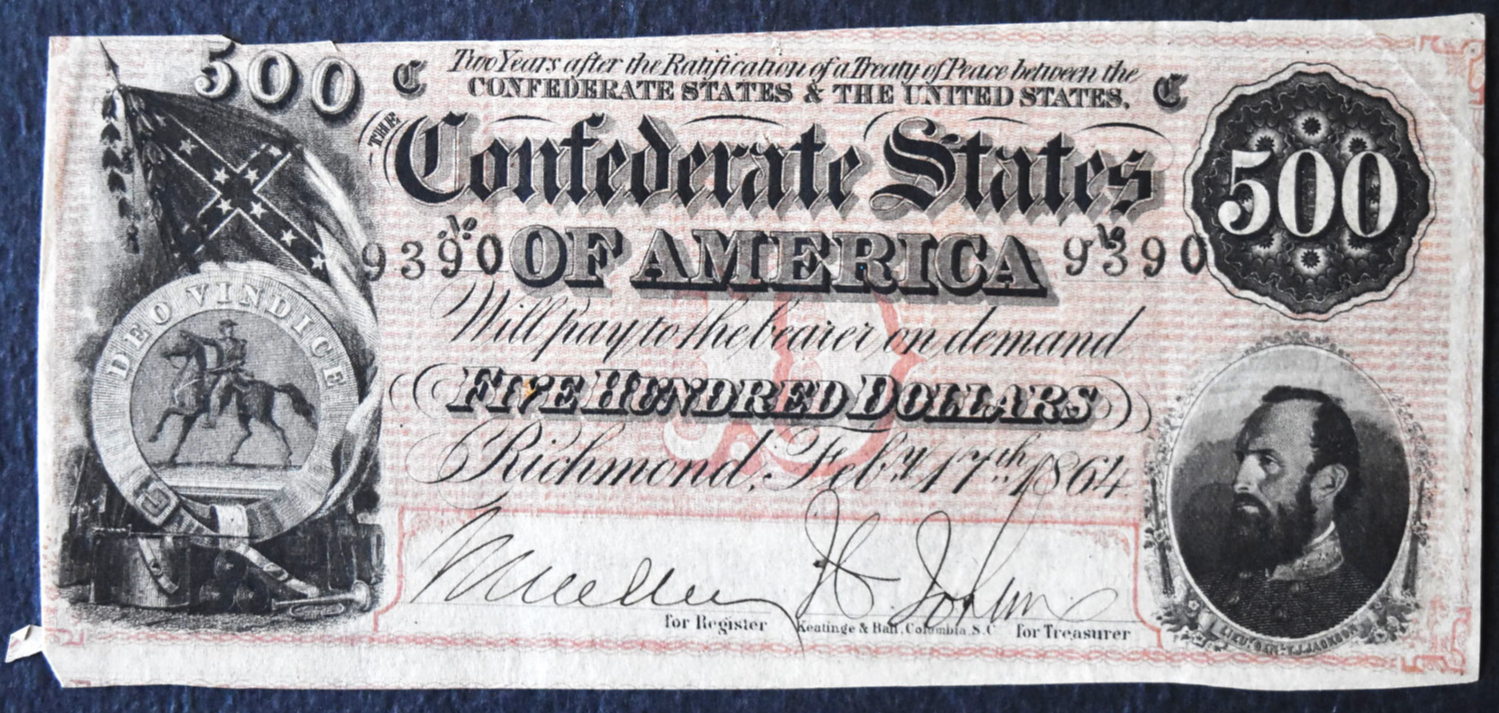 500
C Two Years after the Ratification of a Treaty of Peace between the C
CONFEDERATE STATES & THE UNITED STATES.
THE
Confederate States
500
No 9390 OF AMERICA No 9390
DEO VINDICE
Will pay to the bearer on demand
FIVE HUNDRED DOLLARS
D
Richmond, Feby. 17th 1864
for Register Keatinge & Ball, Columbia, S.C for Treasurer
LIEUT. GEN. T.J. JACKSON